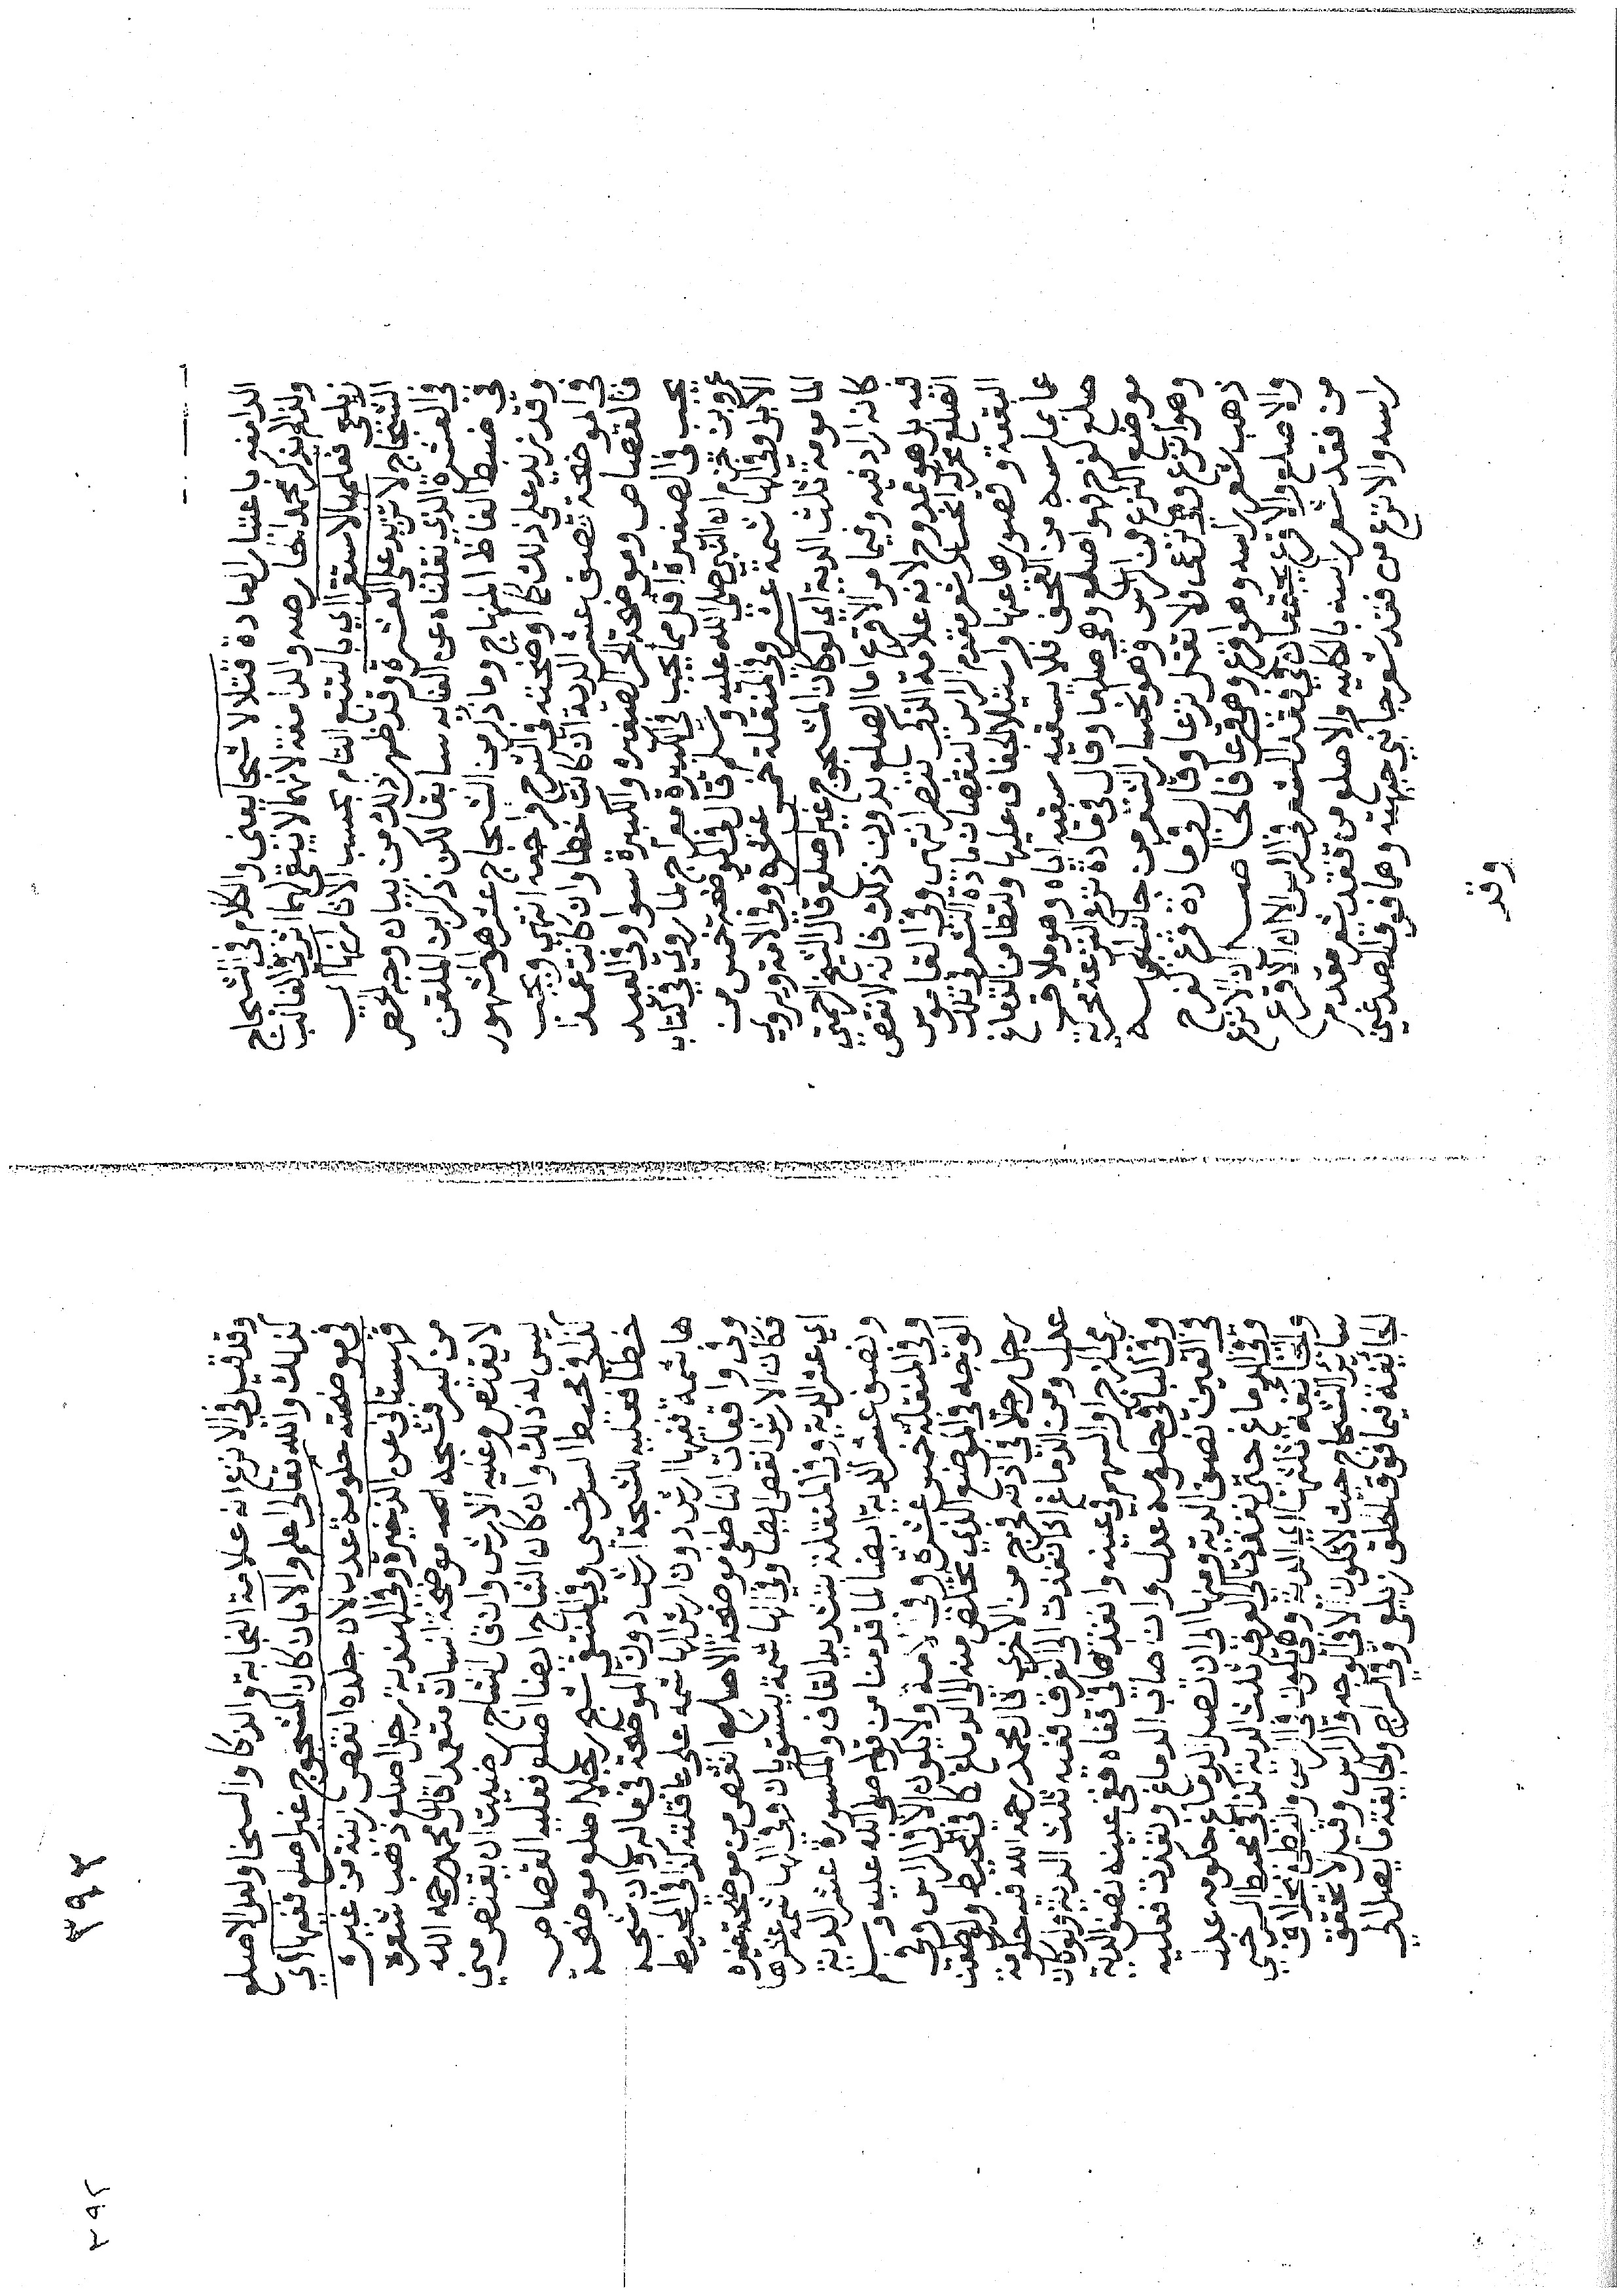 الدامغه باعتبار العادة قتلا لا شجا يعني والكلام في الشجاج
ولذا لم يذكر محمد الخارصه والدامغة لانهما لا يبقى لهما اثر في الغالب
زيلعي فعلم بالاستقراي بالتتبع التام بحسب الاثار انها اي
الشجاج لا تزيد على العشرة وقد ظهر ذلك من بيان وجه الحصر
في العشرة الذي نقلناه عن العنايه سابقا لكن ذكر ابن الملقن
في ضبط الفاظ المنهاج وما ذكر من الشجاج عشر هو المشهور
وقد تزيد على ذلك كما اوضحته في الشرح فراجعه انتهى ويجب
في الموضحة نصف عشر الدية ان كانت خطا وان كانت عمدا
فالقصاص وموضحة الحر الصغيره والكبيرة سوا وفي العبد
يجب في الصغيرة اقل مما يجب في الكبيرة معراج لما روي في كتاب
عمرو بن حزم ان النبي صلى الله عليه وسلم قال في الموضحة خمس من
الابل وفي الهاشمة عشر وفي المنقلة خمس عشرة وفي الامة ويروى
المامومة ثلث الدية اي لو كان المشجوج غير اصلع قال الشيخ الرحمتي
كانه اراد فيه وفيما مر الاقرع اما الصلع بدون ذلك فانه لا نقص
فيه بل هو ممدوح لانه علامة الذكي يننصر انتهى وفي القاموس
الصلع محركة انحسار شعر مقدم الراس لنقصان مادة الشعر في تلك
البقعة وقصورها عنها واستيلا الجفاف عليها ولتطامن الدماغ
عما يماسه من القحف فلا يسقيه سقيه اياه وهو ملاق
صلع كفرح فهو اصلع وهي صلعا وقال في مادة نزع النزعة محركة
موضع النزع من الراس وهو انحسار الشعر من جانبي الجبهه
وهو انزع وهي نزعا ولا تقل نزعا وقال في مادة قرع كفرح
ذهب شعر راسه وهو اقرع وهي قرعا فالحاصل ان الانزع
والاصلع والاقرع يجتمعان في فقد الشعر في الراس الا ان الاقرع
من فقد شعر راسه بالكليه والاصلع من فقد شعر مقدم
راسه والانزع من فقد شعر جانبي جبهته وهما فوق الصدغين
وقد
وقد قيل في الانزع انه علامة النجابة والذكا والسخا ولعل الاصلع
كذلك والله تعالى اعلم والا بان كان المشجوج غير اصلع ففيها اي
في موضحته حكومة عدل لان جلده انقص زينة من غيره
قهستاني عن الذخيرة وفي الهندية رجل اصلع ذهب شعره
من كبر فشجه موضحة انسان متعمدا قال محمد رحمه الله
لا يقتص وعليه الارش وان قال الشاج رضيت ان يقتص مني
ليس له ذلك وان كان الشاج ايضا اصلع فعليه القصاص
كذا في محيط السرخسي وفي المنتقى شج رجلا اصلع موضحة
خطا فعليه للشجة ارش دون الموضحة في ماله وان شجه
هاشمة ففيها ارش دون ارش الهاشمه على عاقلته كذا في المحيط
وفي واقعات الناطفي موضحة الاصلع انقص من موضحة غيره
فكان الارش انقص ايضا وفي الهاشمة يستويان وفي الهاشمه عشرها
اي عشر الدية وفي المنقلة بتشديد القاف المكسورة عشر الدية
ونصف عشر الدية ايضا لما قدمنا من قوله صلى الله عليه وسلم
وفي المنقلة خمس عشرة وفي الامة ولا يكون الا في الراس وفي
الوجه في الموضع الذي يخلص منه الى الدماغ كما في المحيط ولو طعن
رجل رجلا في اذنه فخرج من الاخرى قال محمد رحمه الله فيه حكومة
عدل ومن الدماغ اذا نفذت الى العرف ففيه ثلث الدية ولو كان
رمى الزج او السهم في عينه وانفذ ها في قفاه ففي عينه نصف الدية
وفي الباقي حكومه عدل وان اصاب الدماغ ونفذت فعليه
في العين نصف الدية ومنها الى ان تصل الدماغ حكومه عدل
وفي الدماغ حتى نفذت الى العرف ثلث الدية كذا في محيط السرخسي
والجائفة ثلثها اي الدية وتكون في الراس والبطن بخلاف
سائر الشجاج حيث لا تكون الا في الوجه والراس وقيل لا تتحقق
الجائفة فيما فوق الحلق زيلعي وفي السراج والجائفة ما يصل الى
٣٩٢
٢٩٢